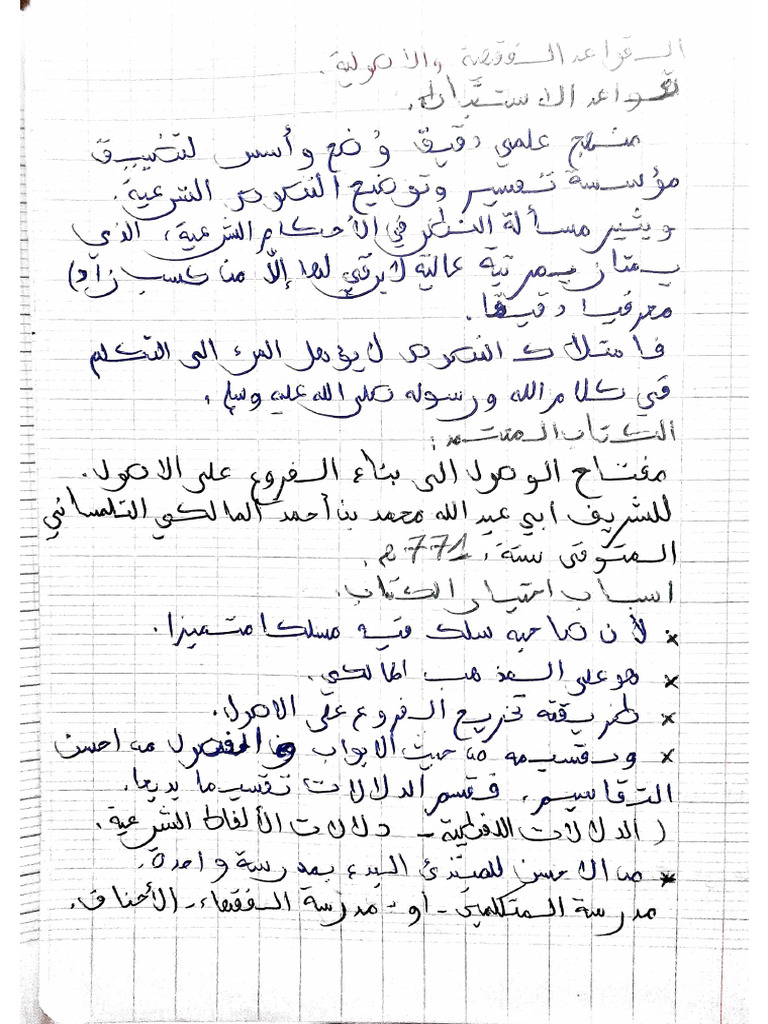 القواعد الفقهية والأصولية.
قواعد الاستنباط.
منهج علمي دقيق وُضع وأسس لتضبيق
مؤسسة تفسير وتوضيح النصوص الشرعية.
ويثير مسألة النظر في الأحكام الشرعية، الذي
يمتاز بمرتبة عالية لا يرقى لها إلّا من اكتسب زادا
معرفيا دقيقا.
فامتلاك النصوص لا يؤهل المرء الى التكلم
في كلام الله ورسوله صلى الله عليه وسلم.
الكتاب المعتمد:
مفتاح الوصول الى بناء الفروع على الاصول.
للشريف أبي عبد الله محمد بن أحمد المالكي التلمساني
المتوفى سنة، 771 هـ.
اسباب اختيار الكتاب.
* لأن صاحبه سلك فيه مسلكا متميزا.
* هو على المذهب المالكي.
* طريقته تخريج الفروع على الاصول.
* وتقسيمه من حيث الابواب والفصول من احسن
التقاسيم، فقسم الدلالات تقسيما بديعا.
( الدلالات اللفظية - دلالات الألفاظ الشرعية.
* من الاحسن للمبتدئ البدء بمدرسة واحدة.
مدرسة المتكلمين - او - مدرسة الفقهاء - الأحناف.